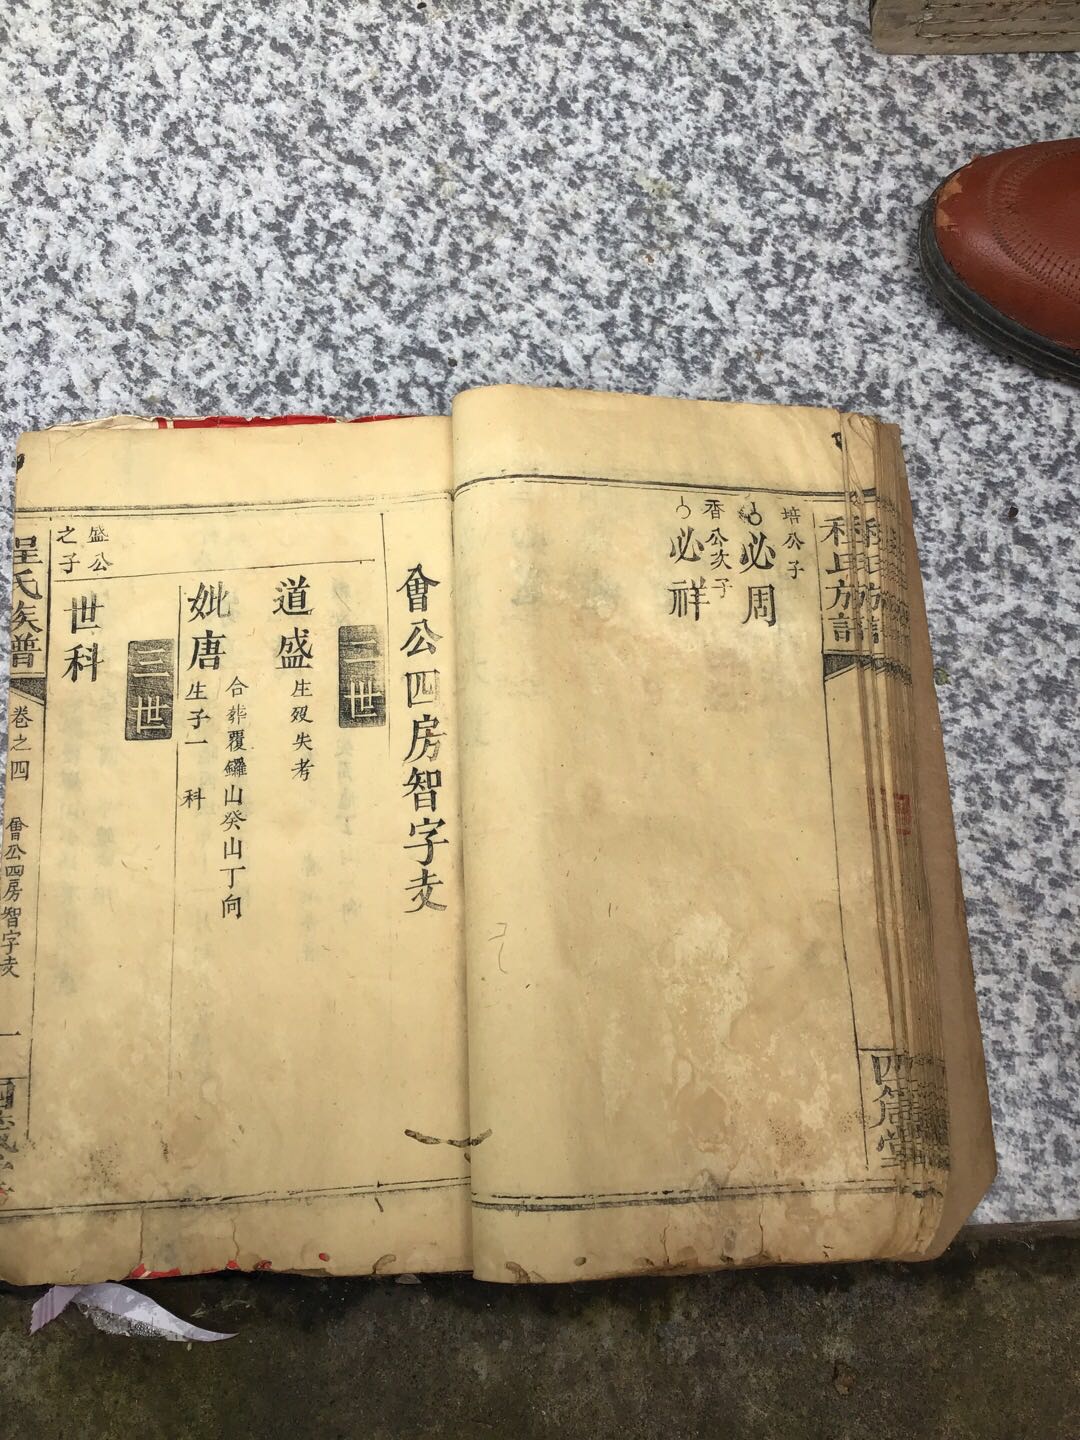 程氏族譜
四箴堂
培公子
必周
香公次子
必祥
會公四房智字支
二世
道盛
生歿失考
妣唐
合葬覆鑼山癸山丁向
生子一
科
三世
盛公
之子
世科
程氏族譜
卷之四
會公四房智字支
一